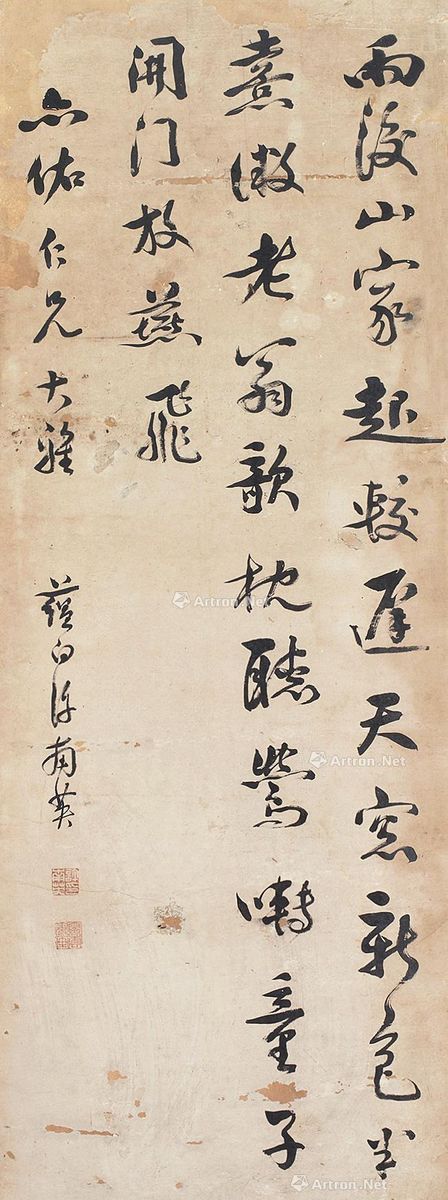 雨後山家起較遲天窓新色半
熹微老翁欹枕聽鶯囀童子
開門放燕飛
佑仁兄大雅
蘊白許南英
Artron.Net
Artron.Net
Artron.Net